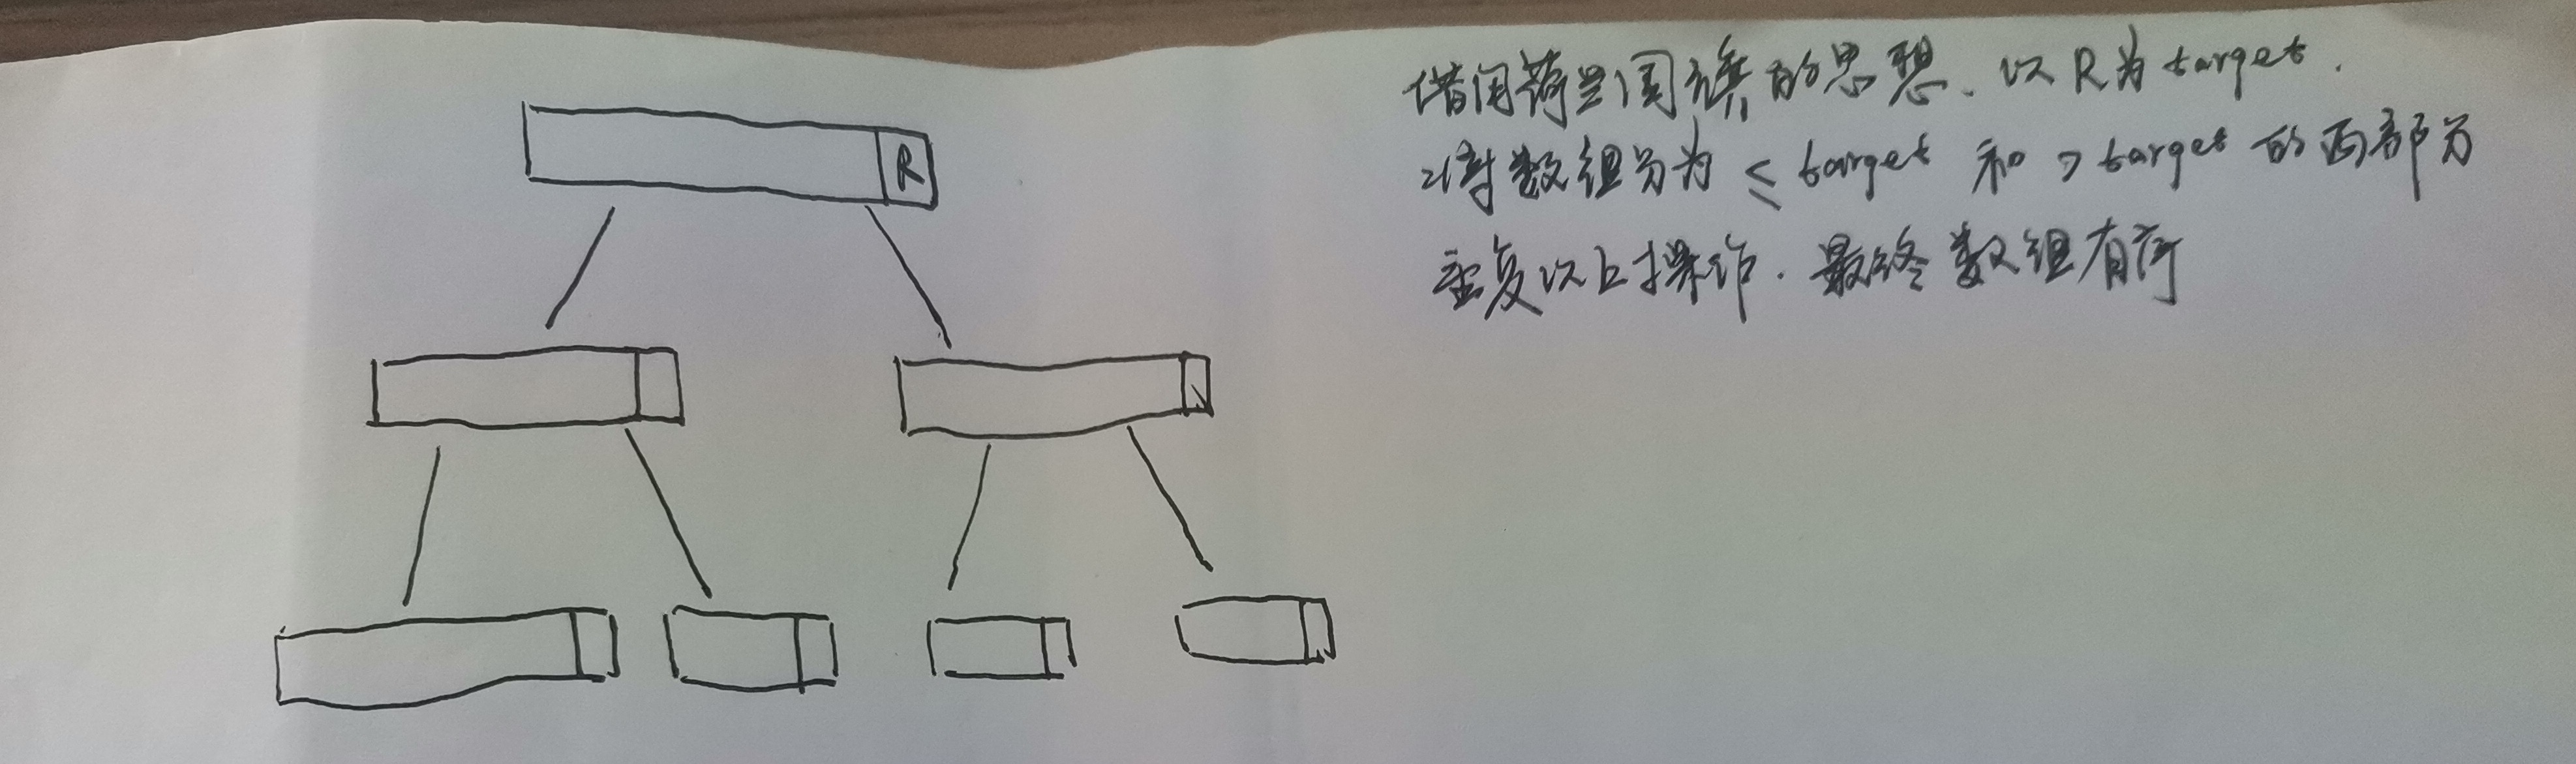 R
借用荷兰国旗的思想. 以R为target.
将数组分为 ≤ target 和 > target 的两部分
重复以上操作. 最终数组有序